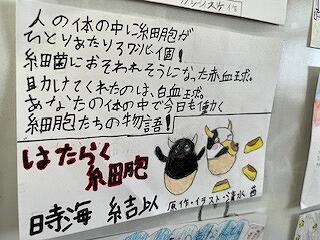 人の体の中に細胞が
ひとりあたり37兆個!
細菌におそわれそうになった赤血球。
助けてくれたのは、白血球。
あなたの体の中で今日も働く
細胞たちの物語!
はたらく
細胞
時海 結以 原作・イラスト・清水 茜